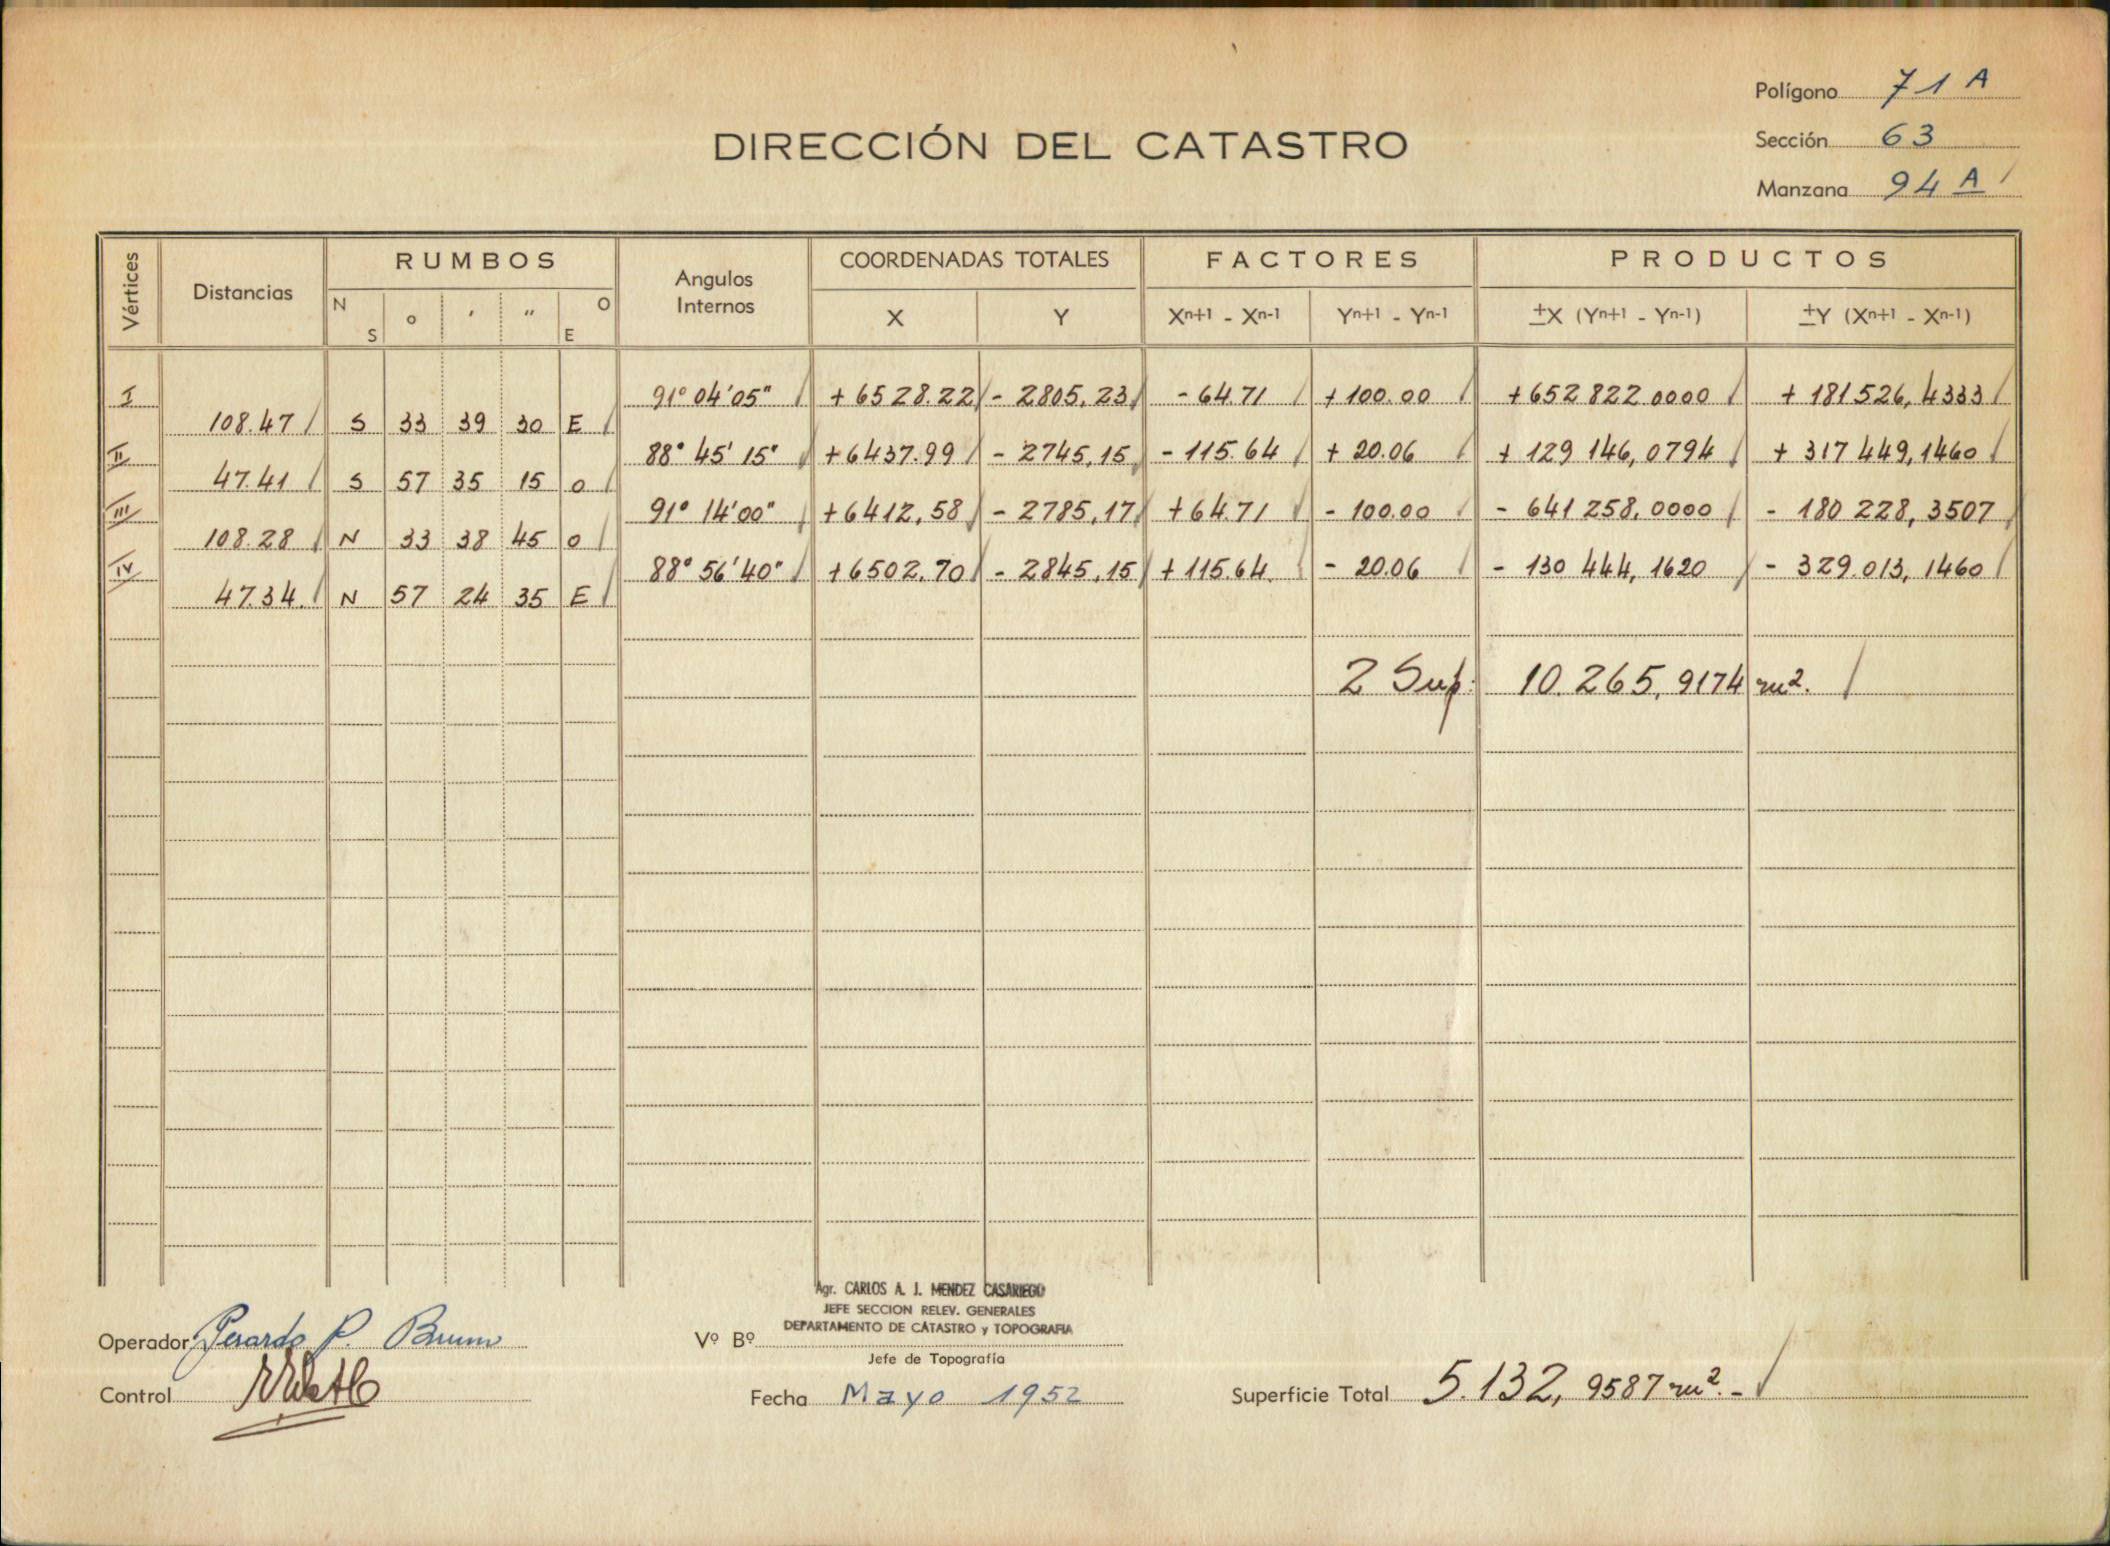 Polígono 71 A
DIRECCIÓN DEL CATASTRO
Sección 63
Manzana 94 A
Vértices Distancias RUMBOS Angulos Internos COORDENADAS TOTALES FACTORES PRODUCTOS
N S ° ′ ″ O E X Y Xn+1 - Xn-1 Yn+1 - Yn-1 ±X (Yn+1 - Yn-1) ±Y (Xn+1 - Xn-1)
I 91° 04' 05" +6528.22 - 2805,23 - 64.71 + 100.00 +652 822.0000 + 181526,4333
108.47 S 33 39 30 E
II 88° 45' 15" +6437.99 - 2745,15 - 115.64 + 20.06 + 129 146,0794 + 317 449,1460
47.41 S 57 35 15 O
III 91° 14' 00" +6412,58 - 2785,17 + 64.71 - 100.00 - 641 258,0000 - 180 228,3507
108.28 N 33 38 45 O
IV 88° 56' 40" +6502.70 - 2845,15 + 115.64 - 20.06 - 130 444,1620 - 329.013,1460
47.34. N 57 24 35 E
2 Sup: 10.265,9174 m².
Agr. CARLOS A. J. MENDEZ CASARIEGO
JEFE SECCION RELEV. GENERALES
DEPARTAMENTO DE CATASTRO y TOPOGRAFIA
Operador P. Brum
Vº Bº
Jefe de Topografía
Control
Fecha Mayo 1952
Superficie Total 5.132,9587 m².-